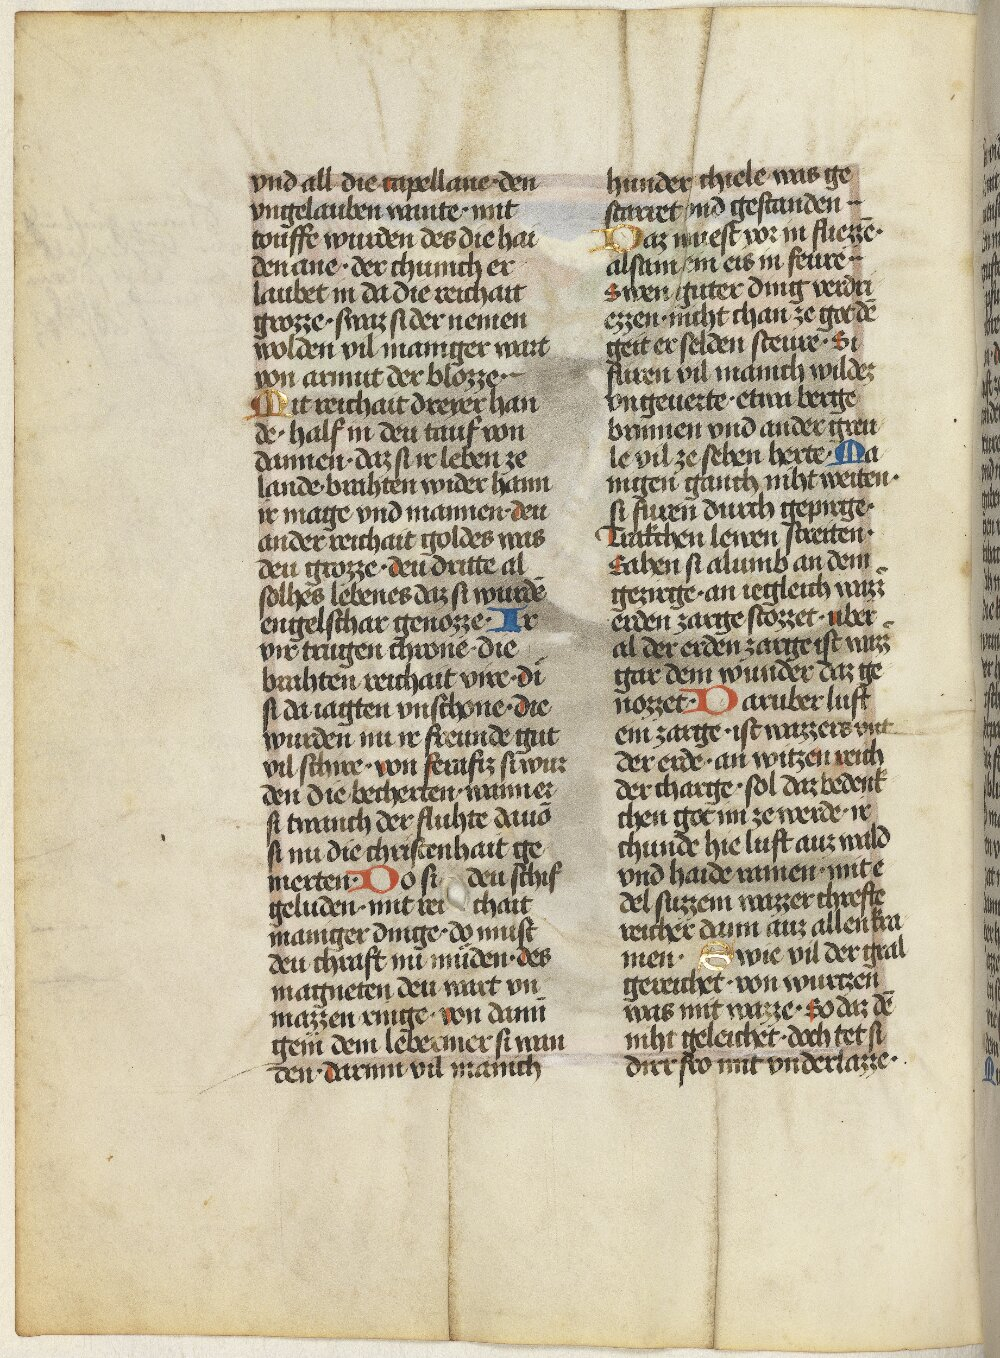 vnd all die capellane · den
vngelauben wante · mit
touffe wurden des die hai
den ane · der chunich er
laubet in da die reichait
grozze · swaz si der nemen
wolden vil maniger wart
von armut der blozze ·
Mit reichait dreyer han
de · half in deu tauf von
dannen · daz si ir leben ze
lande · brahten wider haim
ir mage vnd mannen · deu
ander reichait goldes was
deu grozze · deu dritte al
solhes lebenes daz si wurdē
engelschar genozze · Ir
vir trugen chrone · die
brahten reichait vire · di
si da iagten vnschone · die
wurden nu ir freunde gut
vil schire · von ferafiz si wur
den die becherten · wann er
si twanch der fluhte dauō
si nu die christenhait ge
merten · Do si deu schif
geluden · mit rei chait
maniger dinge · do must
deu chraft nu müden · des
magneten deu wart vn
mazzen ringe · von dann
gein dem lebermer si wan
den · darinn vil manich
hunder chiele was ge
starret vnd gestanden
Daz muest vor in fliezze ·
alsam ein eis in feure
Swen guter ding verdri
ezzen · nicht chan ze got dē
geit er selden steure · Si
furen vil manich wilder
vngeuerte · etwa berge
brunnen vnd ander greu
le vil ze sehen herte · Ma
nigen gauch niht weiten ·
si furen durch gepirge ·
Trakchen lewen streiten ·
Sahen si alumb an dem
gezirge · an iegleich wazz
erden zarge stozzet · uber
al der erden zarge ist wazz
gar dem wunder daz ge
nozzet · Daruber luft
ein zarge · ist wazzers vnt
der erde · an witzen reich
der charge · sol daz bedenk
chen got im ze werde · ir
chunde hie luft auz wald
vnd haide ramen · mit e
del suzzem wazzer chrefte
reicher dann auz allen kra
men · Swie vil der gral
gereichet · von wurtzen
was mit wazze · So daz dē
niht geleichet · doch tet si
dirr fro mit vnderlazze ·